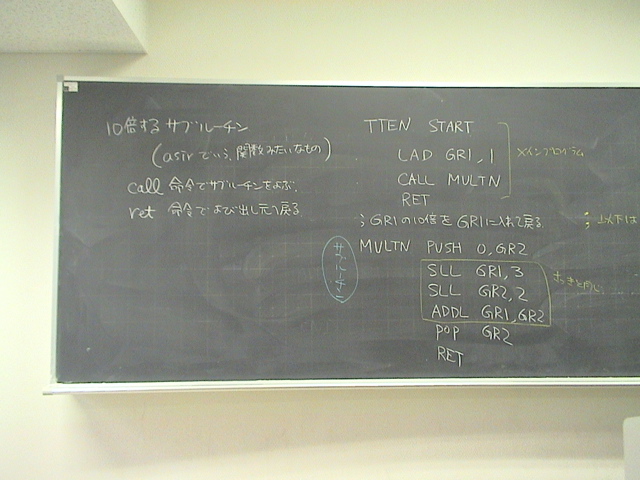 10倍する サブルーチン
(asirでいう、関数みたいなもの)
call 命令でサブルーチンをよぶ.
ret 命令でよび出し元へ戻る
TTEN START
LAD GR1,1
CALL MULTN
RET
メインプログラム
;GR1の10倍をGR1に入れて戻る
; 以下は
MULTN PUSH 0,GR2
SLL GR1,3
SLL GR2,2
ADDL GR1,GR2
POP GR2
RET
さっきと同じ
サブルーチン